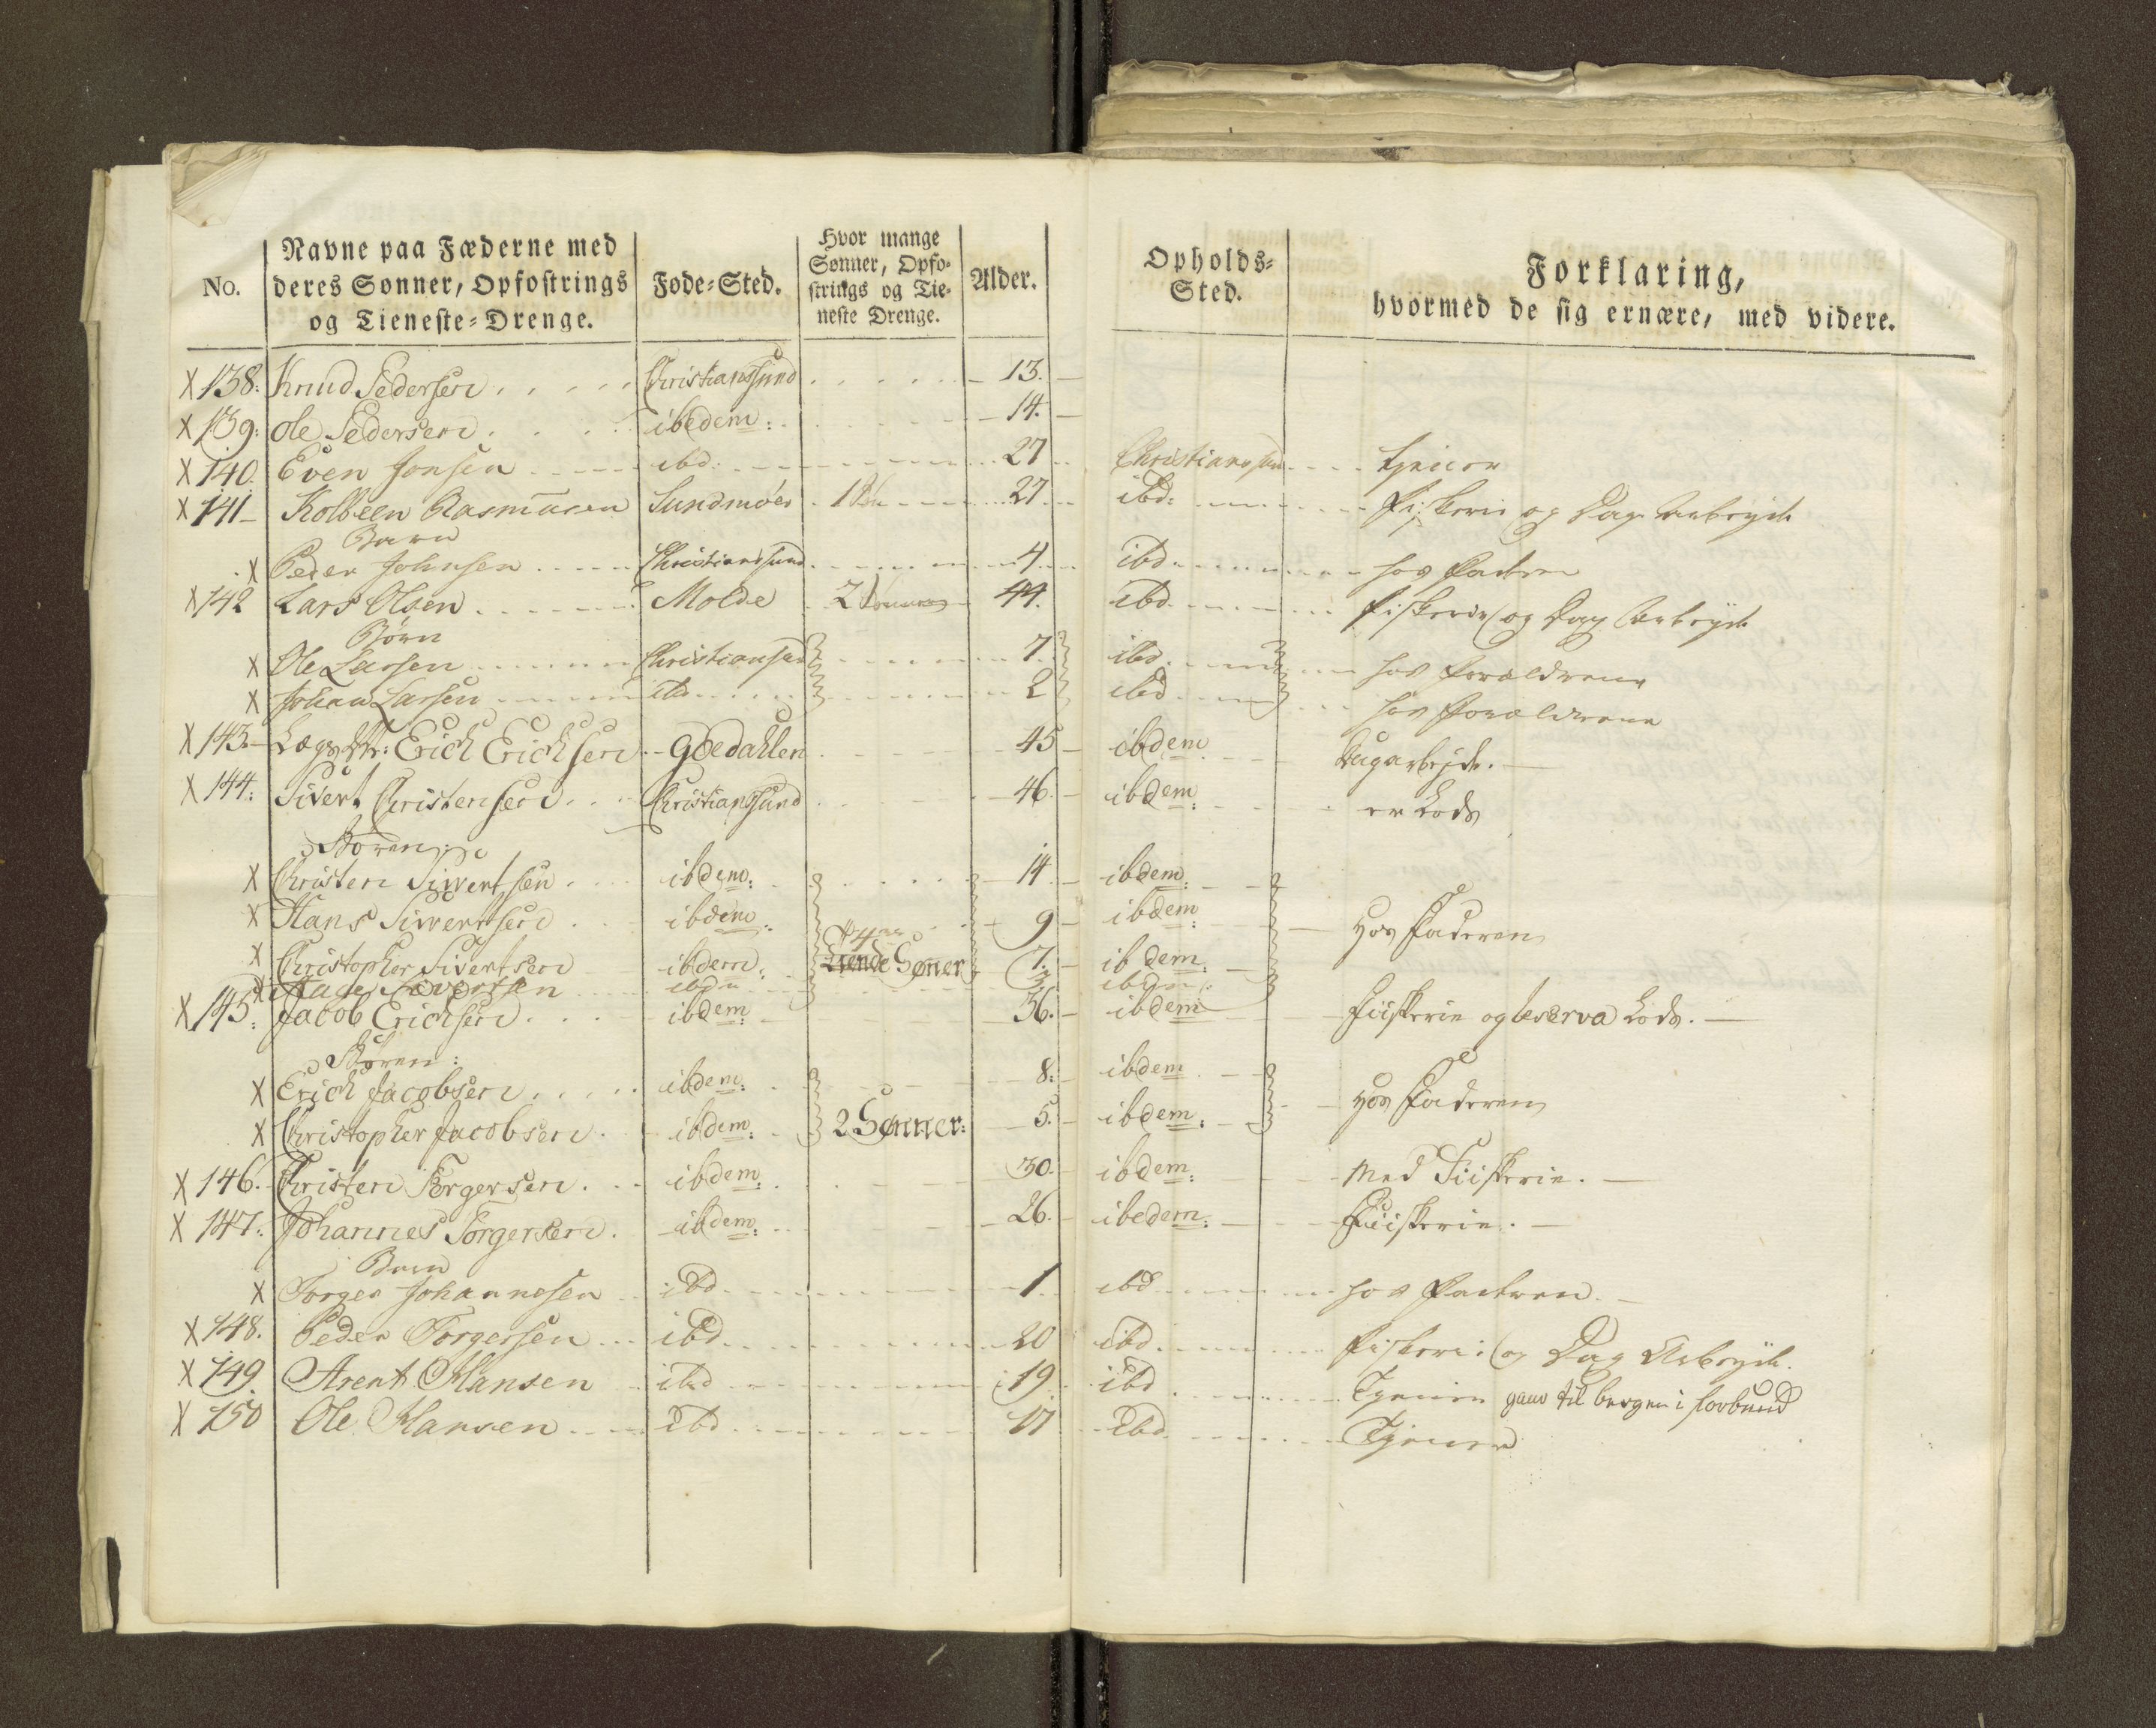 No. Navne paa Fæderne med deres Sønner, Opfostrings og Tieneste=Drenge. Føde=Sted. Hvor mange Sønner, Opfo=strings og Tie=neste Drenge. Alder. Opholds=Sted. Forklaring, hvormed de sig ernære, med videre.
X 138: Knud Pedersen Christianssund 13.
X 139: Ole Pedersen ibedem: 14.
X 140. Even Jonsen ibd. 27 Christianssund tjener
X 141 Kolbeen Rasmusen Sundmöer 1 27 ibd: fiskerie og Dag Arbeyde
Barn
X Peder Johnsen Christianssund 4 ibd hos Faderen
X 142 Lars Olsen Molde 2 Sønner 44. ibd fiskerie og Dag Arbeyde
Børn
X Ole Larsen Christiansund 7 ibd hos forældrene
X Johan Larsen ibd 2 ibd hos forældrene
X 143. Lægds Mr: Erich Erichsen Gdedahlen 45 ibdem Dagarbejde.
X 144: Sivert Christensen Christianssund 46. ibdem: er Lods
Børen:
X Christen Sivertsen ibdem: 14 ibdem:
X Hans Sivertsen ibdem: 9 ibdem: Hos Faderen
X Christopher Sivertsen ibdem: Sønner 7. ibdem:
X Aage Sivertsen ibdm 3 ibdm:
X 145: Jacob Erichsen ibdem: 36. ibdem Fiiskerie og reserva Lods.
Børen:
X Erich Jacobsen ibdem: 8: ibdem
X Christopher Jacobsen ibdem: 2 Sønner: 5. ibdem: Hos Faderen
X 146. Christen Torgersen ibdem: 30. ibdem: Med Fiiskerie.
X 147: Johannes Torgersen ibdem: 26. ibedem: Fiiskerie.
Barn
X Torger Johannesen ibd 1 ibd hos Faderen
X 148. Peder Torgersen ibd 20 ibd fiskerie og Dag Arbeyde.
X 149 Arent Hansen ibd 19 ibd Tjener gaar til bergen i forbund
X 150 Ole Hansen ibd 17 ibd Tjener